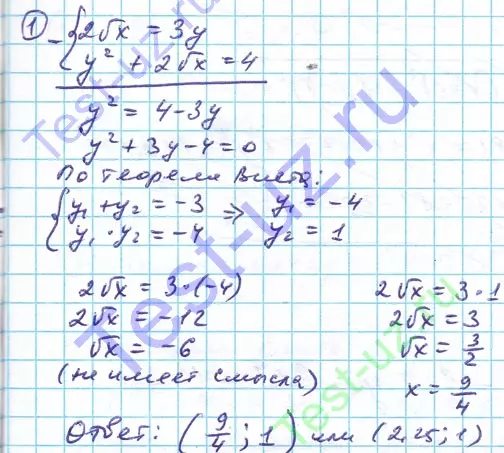 ① { 2√x = 3y
– { y² + 2√x = 4
y² = 4 – 3y
y² + 3y – 4 = 0
По теореме Виета:
{ y₁ + y₂ = –3 ⇒ y₁ = –4
{ y₁ · y₂ = –4 y₂ = 1
2√x = 3·(–4) 2√x = 3·1
2√x = –12 2√x = 3
√x = –6 √x = 3/2
(не имеет смысла) x = 9/4
Ответ: (9/4; 1) или (2,25; 1)
Test-uz.ru
Test-uz.ru
Test-uz.ru